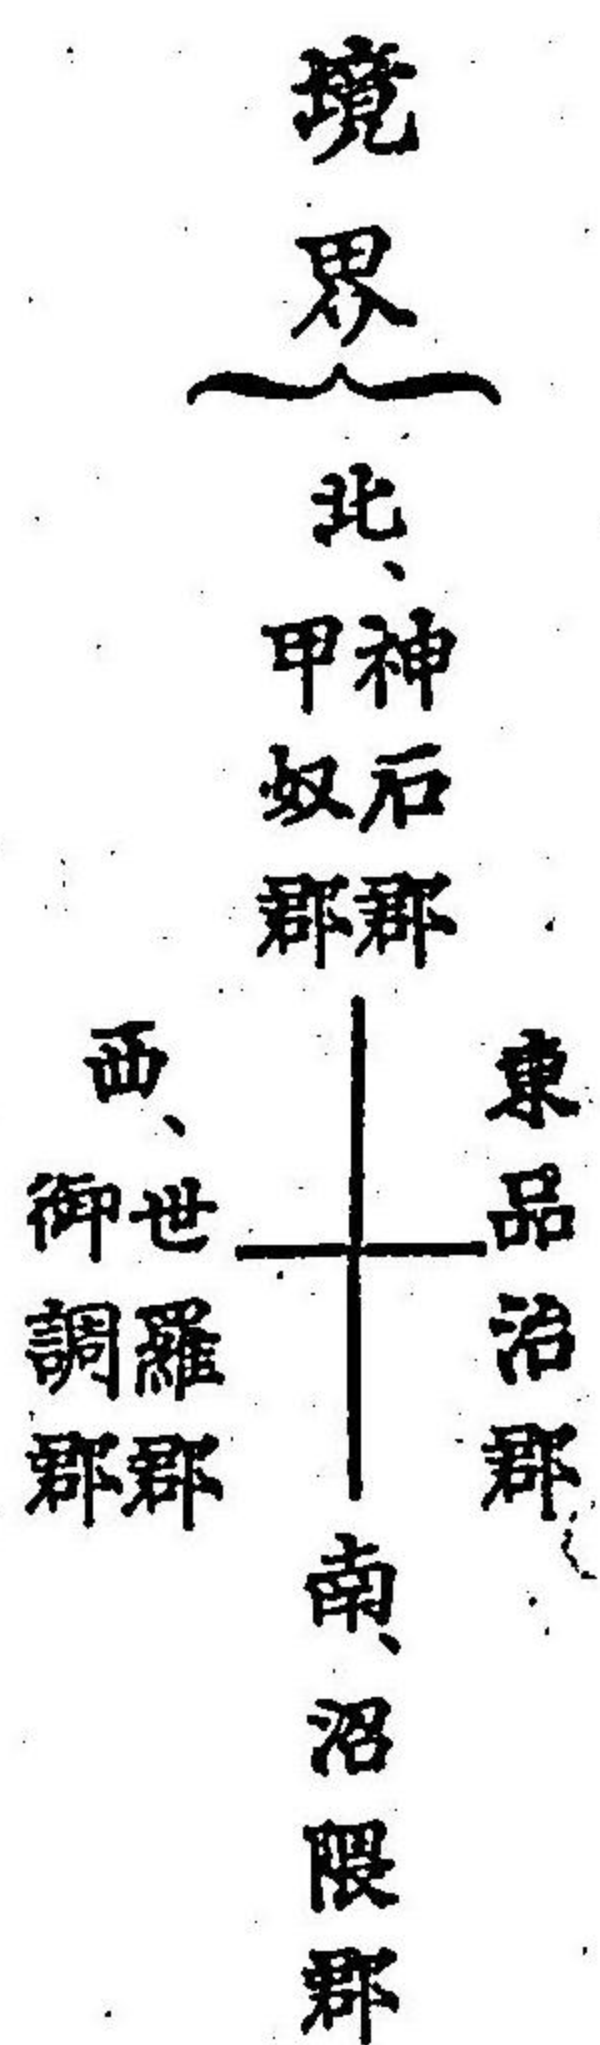 境界
北、
神石郡
甲奴郡
東品治郡
西、
世羅郡
御調郡
南、沼隈郡